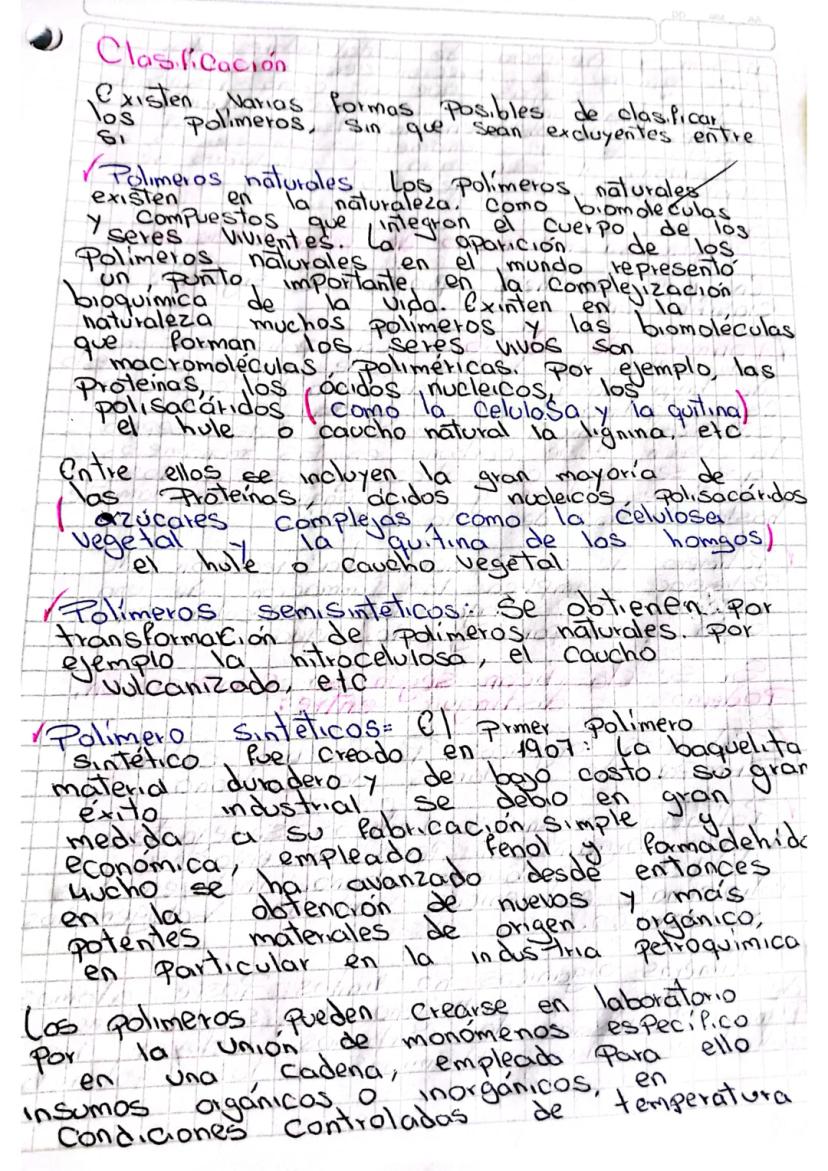 Clasificación
Existen Varias formas posibles de clasificar
los polímeros, sin que sean excluyentes entre
si
Polimeros naturales Los polímeros naturales
existen en la naturaleza. como biomoléculas
y compuestos que integran el cuerpo de los
seres vivientes. La aparición de los
Polímeros naturales en el mundo representó
un punto importante en la complejización
bioquímica de la vida. Existen en la
naturaleza muchos polimeros y las biomoléculas
que forman los seres vivos son
macromoléculas poliméricas. Por ejemplo, las
Proteínas, los ácidos nucleicos, los
polisacáridos (como la celulosa y la quitina)
el hule o caucho natural la lignina, etc
Entre ellos se incluyen la gran mayoría de
las Proteínas, ácidos nucleicos, polisacáridos
(azúcares complejas, como la celulosa
vegetal y la quitina de los homgos)
el hule o caucho vegetal
Polímeros semisinteticos: Se obtienen por
transformación de polímeros naturales. por
ejemplo la nitrocelulosa, el caucho
vulcanizado, etc
Polímero sintéticos= El prmer polímero
sintético fue creado en 1907: La baquelita
material duradero y de bajo costo. su gran
éxito industrial se debio en gran
medida a su fabricación simple y
económica, empleado fenol y formadehido
Mucho se ha avanzado desde entonces
en la obtención de nuevos y más
potentes materiales de origen orgánico,
en particular en la industria petroquímica
Los polimeros pueden crearse en laboratorio
por la unión de monómenos específico
en una cadena, empleado para ello
insumos orgánicos o inorgánicos, en
condiciones controladas de temperatura